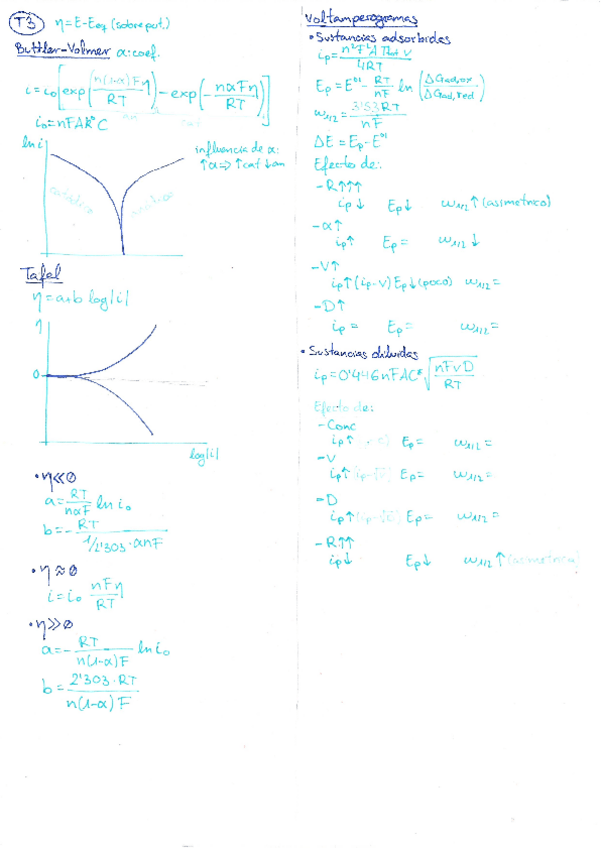 T3 η=E-Eeq (sobrepot.)
Buttler-Volmer α:coef.
i=i₀[exp(n(1-α)Fη/RT)-exp(-nαFη/RT)]
an cat
i₀=nFAk⁰C
ln i
influencia de α:
↑α=>↑cat ↓an
catódico anódico
Tafel
η=a+b log|i|
η
0
log|i|
•η<<0
a=RT/nαF ln i₀
b=-RT/1/2'303·αnF
•η≈0
i=i₀ nFη/RT
•η>>0
a=-RT/n(1-α)F ln i₀
b=2'303·RT/n(1-α)F
Voltamperogramas
•Sustancias adsorbidas
ip=n²F²A Γtot v/4RT
Ep=E⁰'-RT/nF ln(ΔGad,ox/ΔGad,red)
w1/2=3'53RT/nF
ΔE=Ep-E⁰'
Efecto de:
-R↑↑↑
ip↓ Ep↓ w1/2↑(asimétrico)
-α↑
ip↑ Ep= w1/2↓
-V↑
ip↑(ip-v) Ep↓(poco) w1/2=
-D↑
ip= Ep= w1/2=
•Sustancias diluidas
ip=0'446nFAC*√nFvD/RT
Efecto de:
-Conc
ip↑ Ep= w1/2=
-V
ip↑ Ep= w1/2=
-D
ip↑ Ep= w1/2=
-R↑↑
ip↓ Ep↓ w1/2↑(asimétrico)